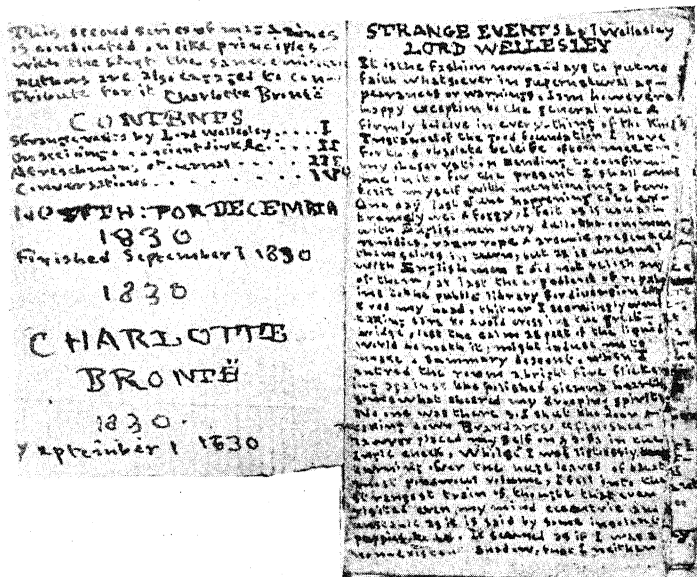 This second series of magazines
is conducted on like principles
with the first the same eminent
authors are also engaged to con-
tribute for it Charlotte Brontë
CONTENTS
Strange events by Lord Wellesley..... I
On seeing ancient dirk &c... II
A Frenchman's journal .... III
Conversations........
FOR DECEMBER
1830
Finished September 1 1830
1830
CHARLOTTE
BRONTË
1830.
September 1 1830
STRANGE EVENTS by Wellesley
LORD WELLESLEY
It is the fashion now a days to put no
faith whatsoever in supernatural ap-
pearances or warnings. I am however a
happy exception to the general rule &
firmly believe in everything of the kind
Instances of the good foundation I have
for this obsolete belief often meet
my observation tending to confirm
me in it for the present I shall con
tent myself with mentioning a few
One day last June happening to be ex-
tremely wet & foggy, I felt as is usual
with Englishmen very dull. the common
remedies, razor rope & arsenic presented
themselves in turn, but as is unusual
with Englishmen I did not relish any
of them, at last the expedient of repair
ing to the public library for diversion enter
ed my head, thither I accordingly went
taking care to avoid crossing the great
bridge lest the calm aspect of the liquid
world beneath it might induce me to
make a summary descent. when I
entered the room a bright fire flicker
ing against the polished stemma hearth
somewhat cheered my drooping spirits
No one was there so I shut the door &
taking down Brandart's Finished
Lawyer placed myself on a sofa in the
ingle cheek. Whilst I was listlessly
turning over the huge leaves of that
most ponderous volume, I fell into the
strangest train of thought that ever
visited even my mind eccentric and
unstable as it is said by some insolent
puppies to be. It seemed as if I was a
non-existent shadow, that I neither